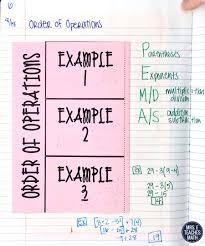 6
9/15 ORDER OF OPERATIONS
ORDER OF OPERATIONS
EXAMPLE
1
EXAMPLE
2
EXAMPLE
3
Parentheses
Exponents
M/D multiplication
division
A/S addition
subtraction
29-3(9-4)
29-3(5)
29-15
14
-9+28
19
MATH